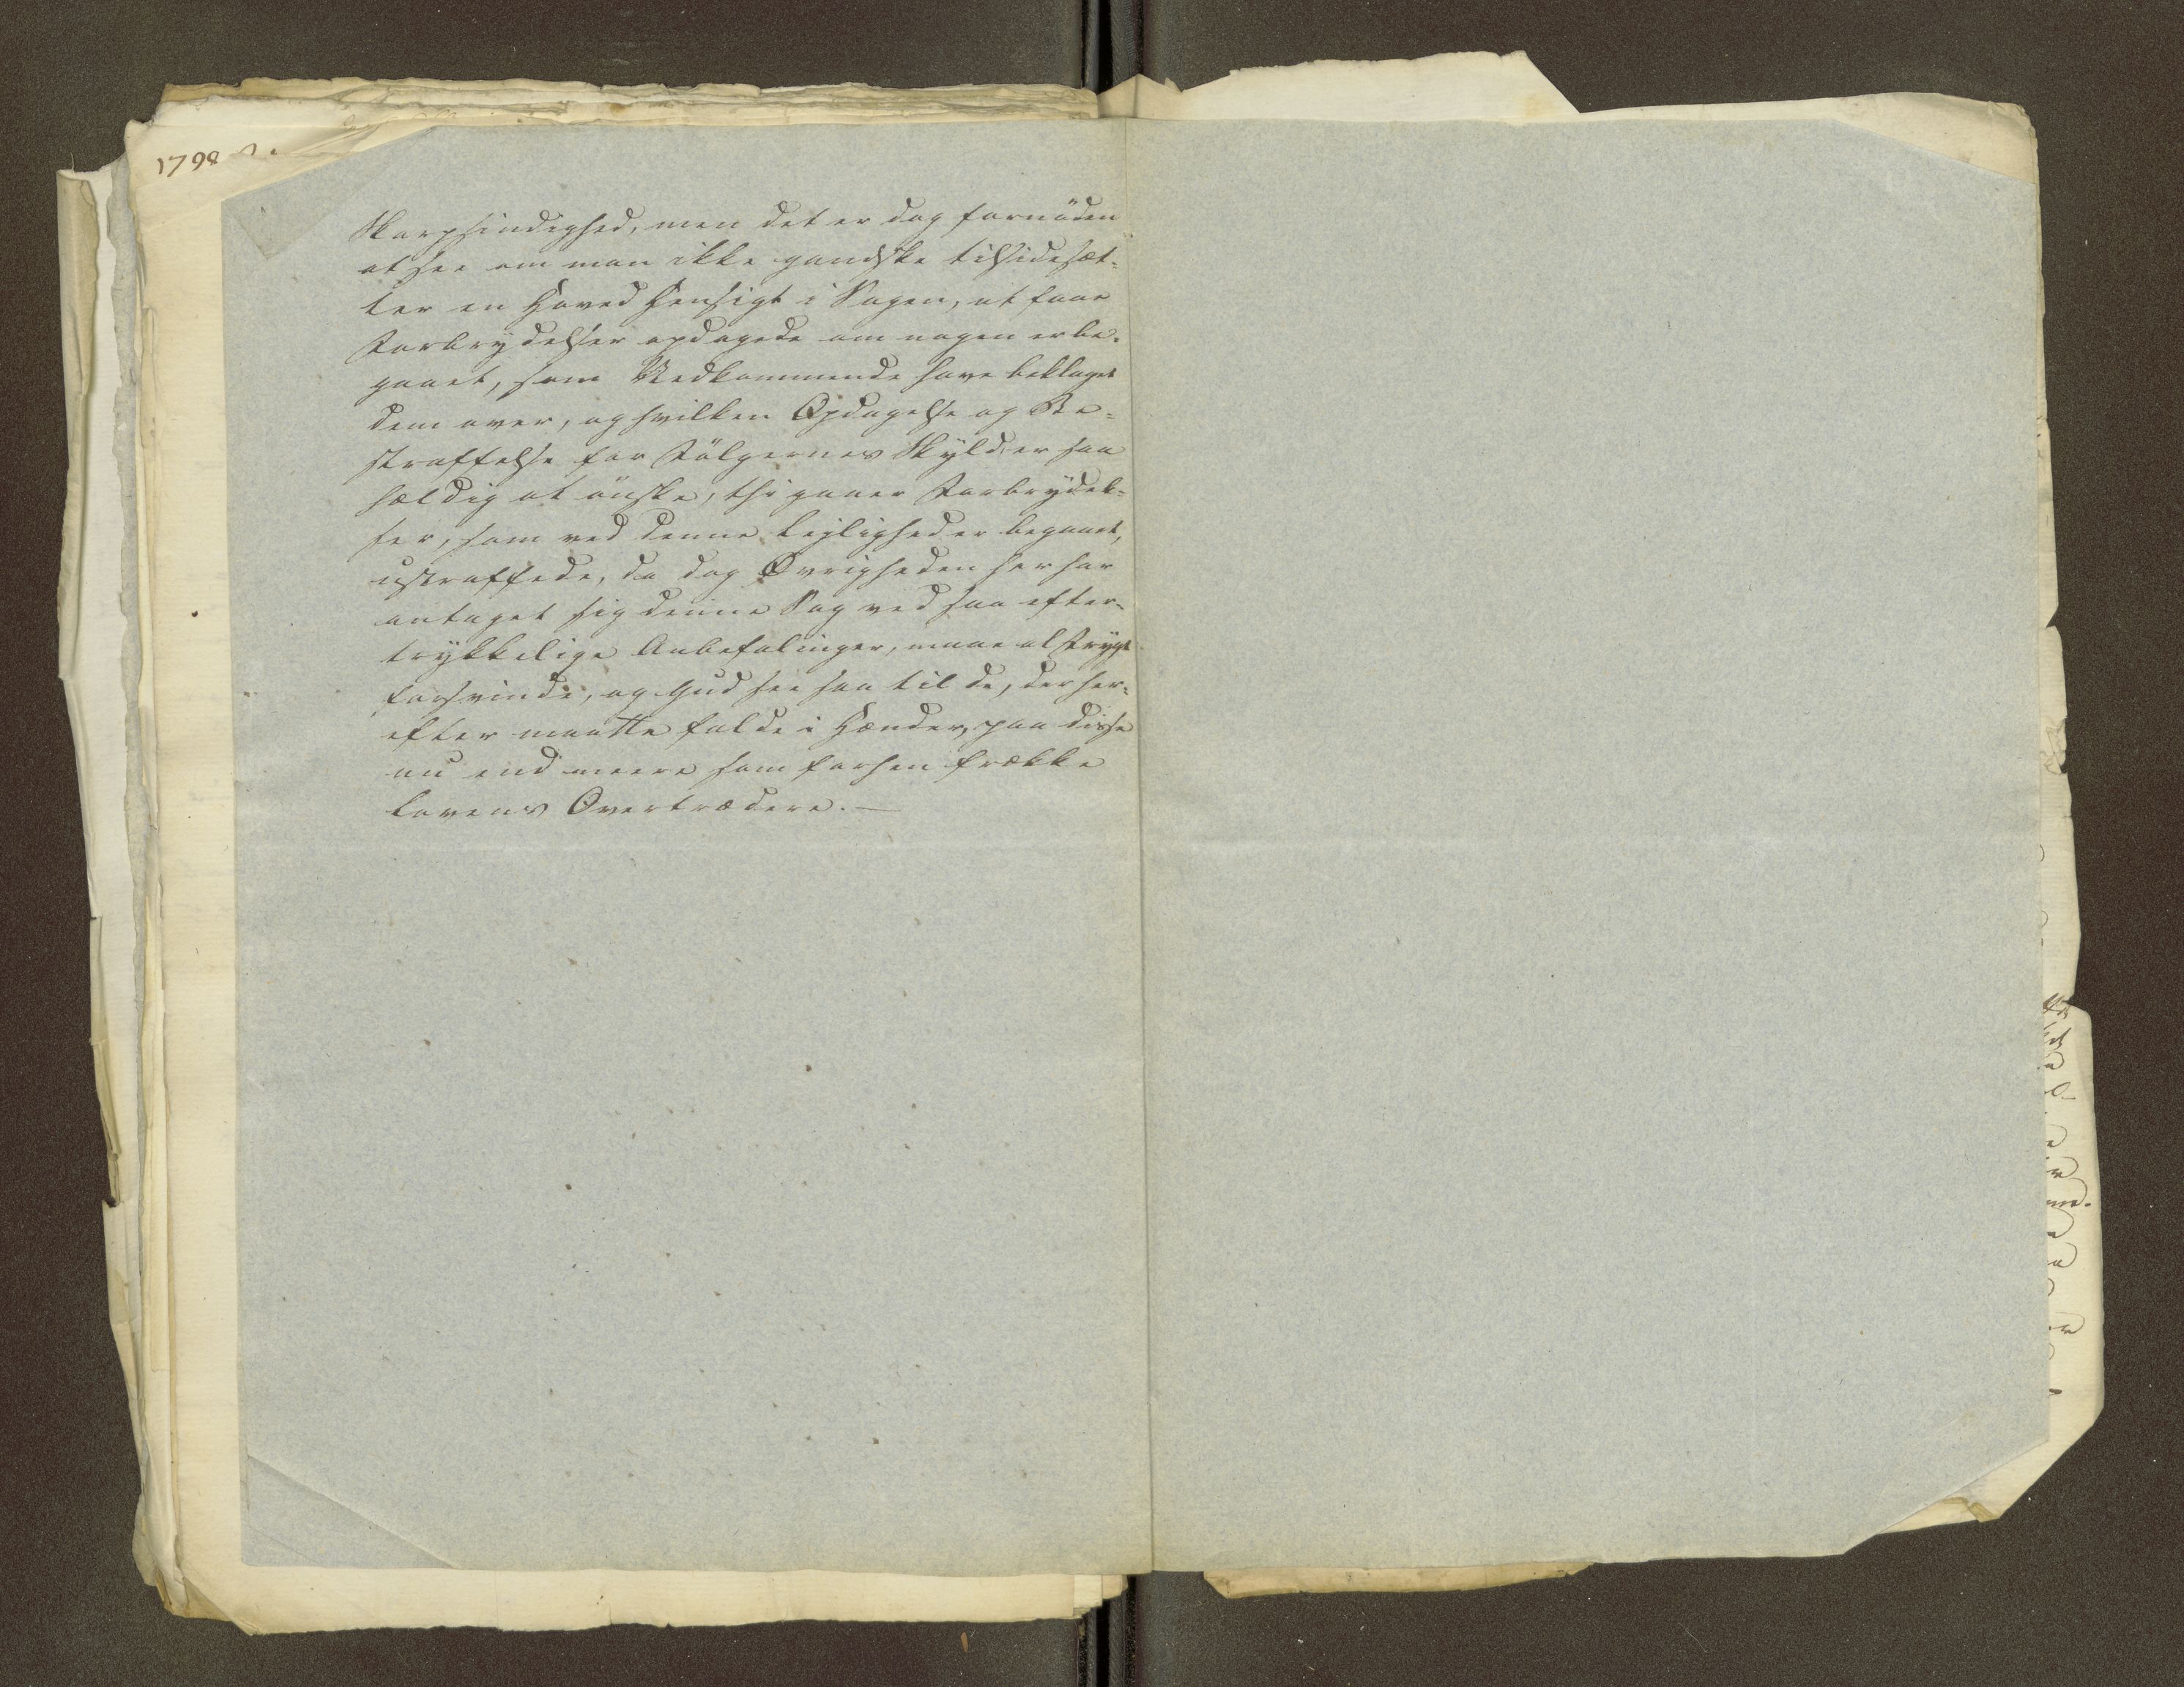 1798
Skarpsindighed, men det er dog fornöden
at see om man ikke gandske tilsidesæt-
ter en Hoved Hensigt i Sagen, at faae
Forbrydelser opdagede om nogen er be-
gaaet, som Vedkommende have beklaget
dem over, og hvilken Opdagelse og Be-
straffelse for Fölgernes Skyld er saa
hældig at önske, thi gaaer Forbrydel-
ser, som ved denne Lejlighed er begaaet,
ustraffede, da dog Øvrigheden her har
antaget sig denne Sag ved saa efter-
trykkelige Anbefalinger, maae al Frygt
forsvinde, og Gud see saa til de, der her-
efter maatte falde i Hænder, paa disse
nu end meere som forhen frække
Lovens Overtrædere. —